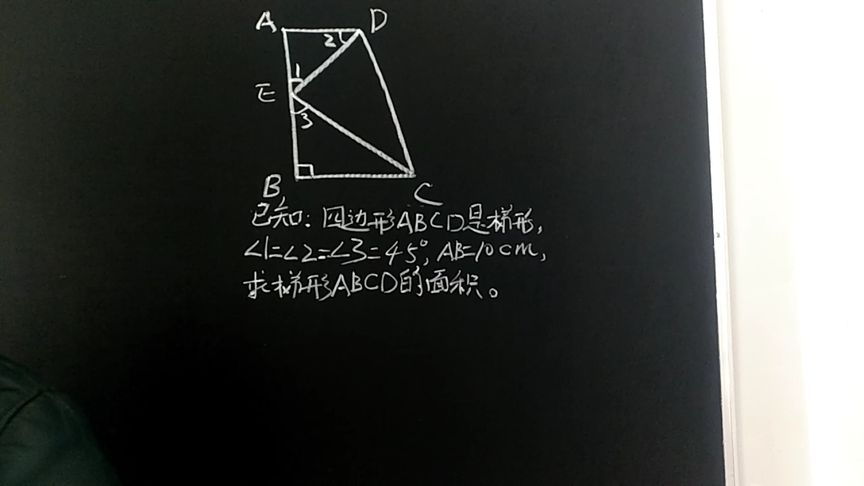 A D
2
1
E
3
B C
已知：四边形ABCD是梯形，
∠1=∠2=∠3=45°，AB=10cm，
求梯形ABCD的面积。